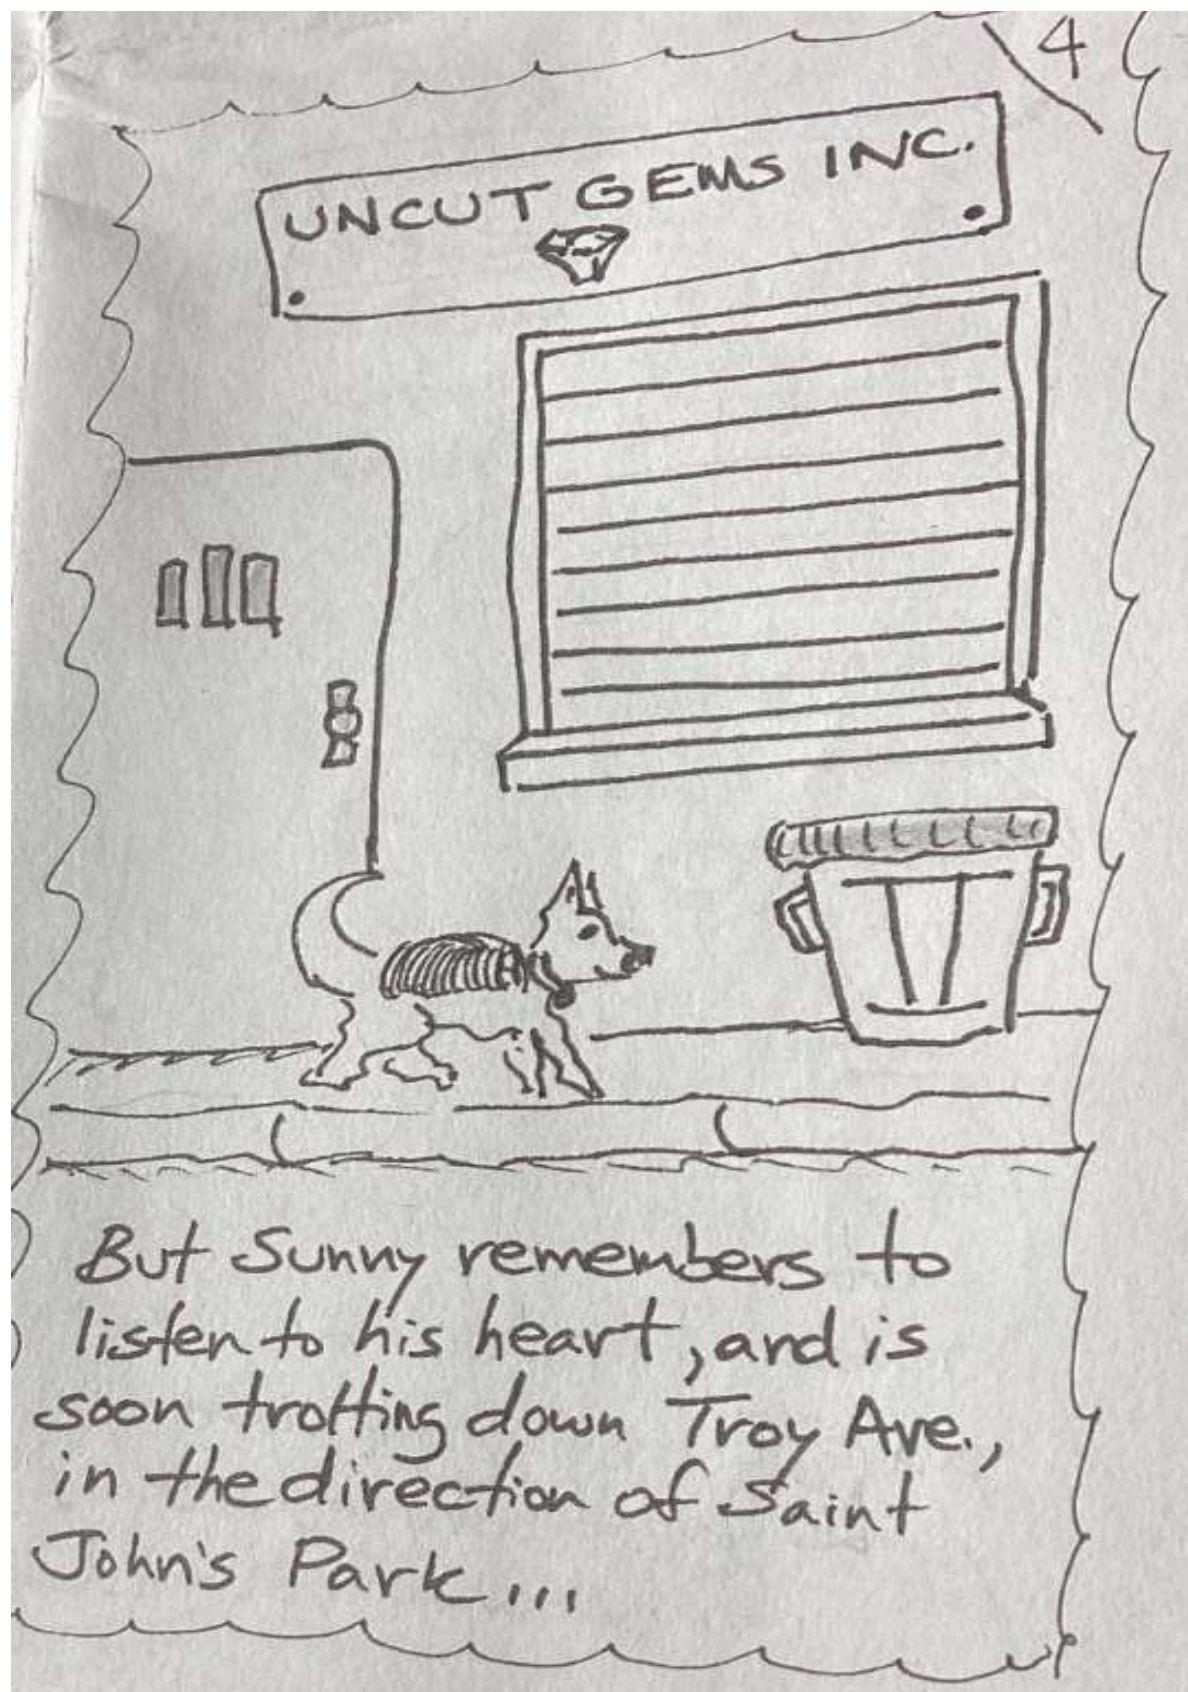 4
UNCUT GEMS INC.
But Sunny remembers to
listen to his heart, and is
soon trotting down Troy Ave.,
in the direction of Saint
John's Park...